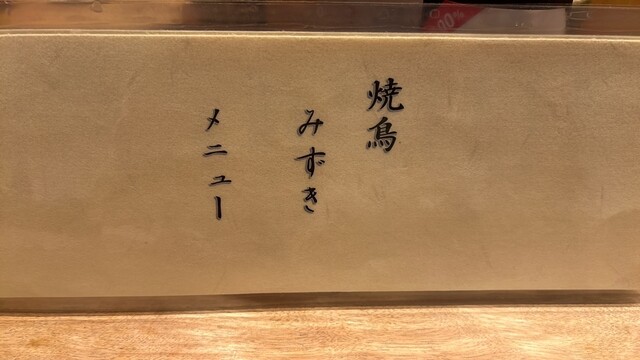 焼鳥
みずき
メニュー